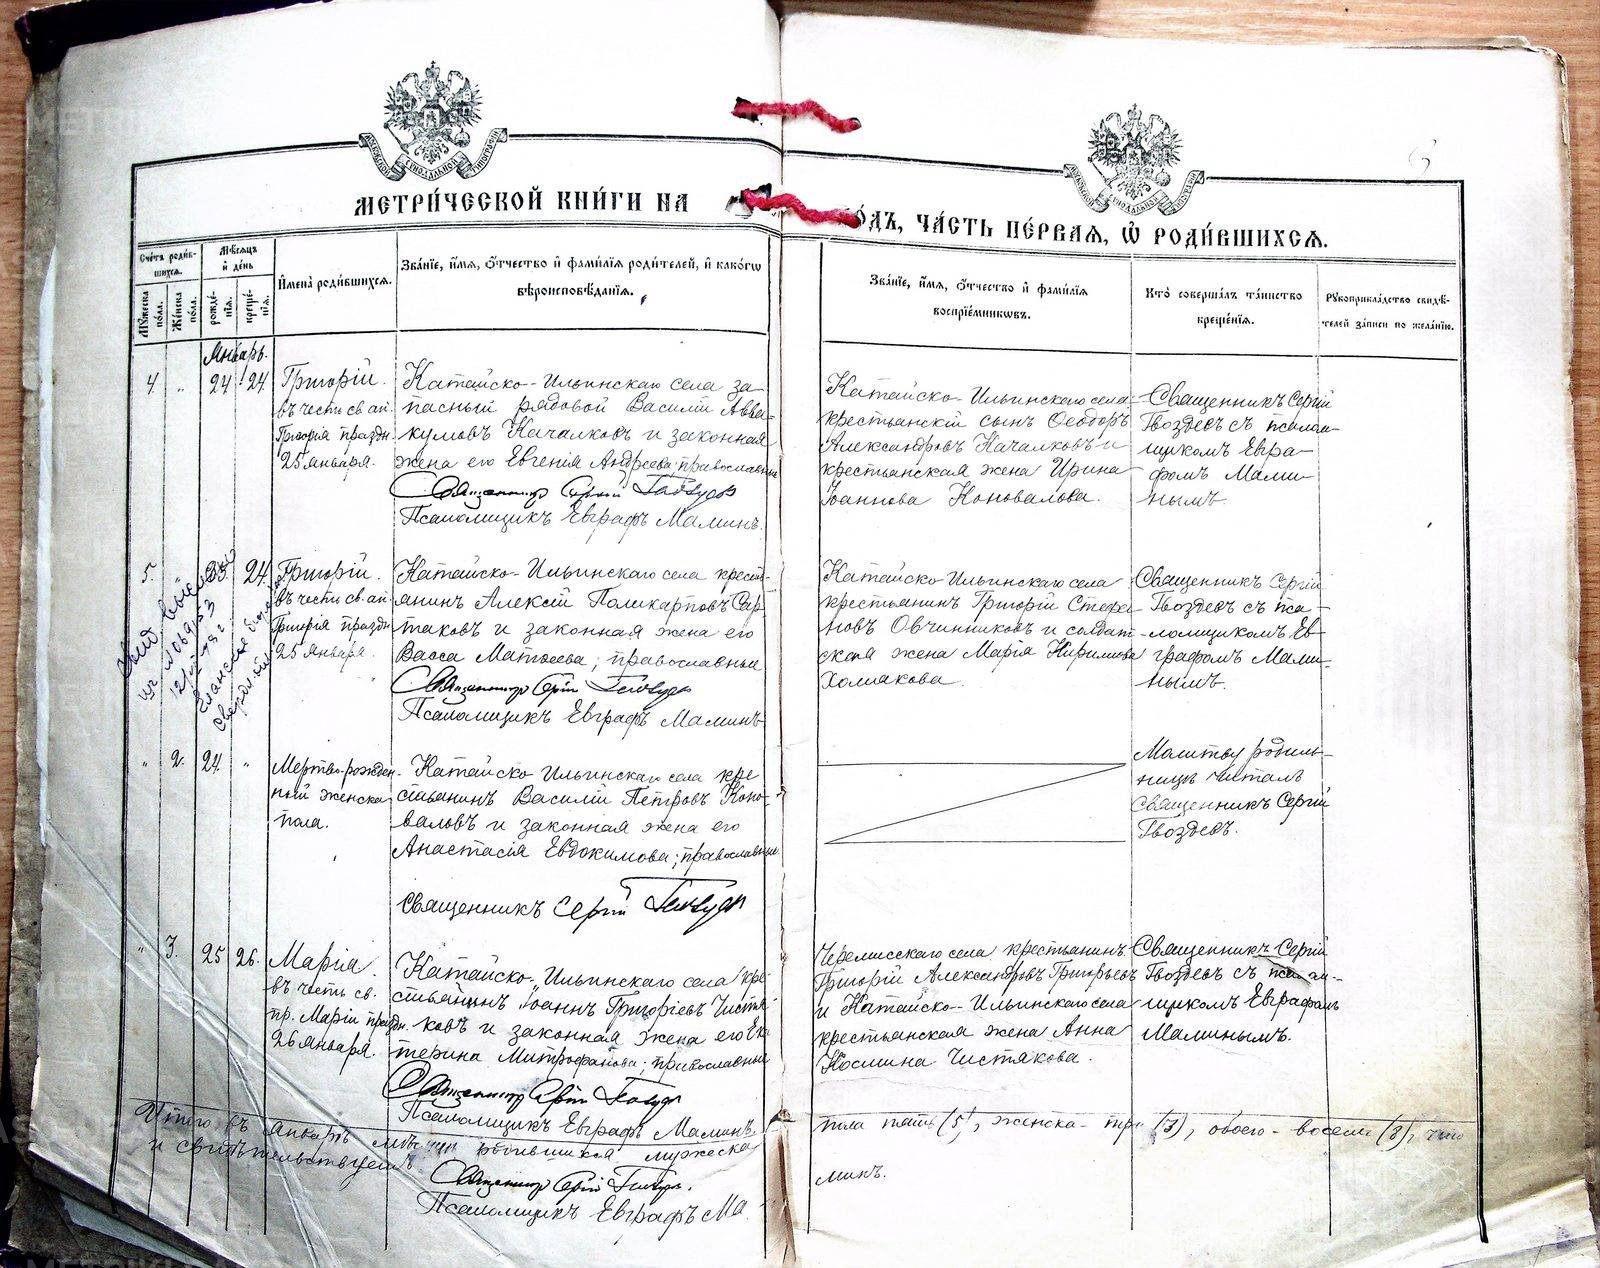 МЕТРИ́ЧЕСКОЙ КНИ́ГИ НА
ГО́ДЪ, ЧА́СТЬ ПЕ́РВАЯ, Ѡ РОДИ́ВШИХСЯ.
Сче́тъ роди́в-
шихся.
Мѣ́сяцъ
и҆ де́нь
Мꙋ́жеска по́ла.
Же́нска по́ла.
рожде́-
нїя.
креще́-
нїя.
И҆мена̀ роди́вшихся.
Зва́нїе, и҆́мя, ѻ҆́тчество и҆ фами́лїя роди́телей, и҆ како́гѡ
вѣроисповѣ́данїя.
Зва́нїе, и҆́мя, ѻ҆́тчество и҆ фами́лїя
воспрїе́мникѡвъ.
Кто̀ соверша́лъ та́инство
креще́нїя.
Рꙋкоприкла́дство свидѣ́-
телей за́писи по жела́нїю.
Январь.
4. " 24 24
Григорій.
въ честь св. ап.
Григорія праздн.
25 января.
Катайско-Ильинскаго села за-
пасный рядовой Василій Авва-
кумовъ Качалковъ и законная
жена его Евгенія Андреева; православные
Священникъ Сергій Гвоздевъ
Псаломщикъ Евграфъ Маминъ.
Катайско-Ильинскаго села
крестьянскій сынъ Ѳеодоръ
Александровъ Качалковъ и
крестьянская жена Ирина
Іоаннова Коновалова.
Священникъ Сергій
Гвоздевъ съ псалом-
щикомъ Евгра-
фомъ Мами-
нымъ.
5. 23. 24.
Григорій.
въ честь св. ап.
Григорія праздн.
25 января.
Катайско-Ильинскаго села кресть-
янинъ Алексій Поликарповъ Сар-
таковъ и законная жена его
Васса Матѳеева; православные
Священникъ Сергій Гвоздевъ
Псаломщикъ Евграфъ Маминъ
Катайско-Ильинскаго села
крестьянинъ Григорій Стефа-
новъ Овчинниковъ и солдат-
ская жена Марія Кирилова
Холмакова.
Священникъ Сергій
Гвоздевъ съ пса-
ломщикомъ Ев-
графомъ Мами-
нымъ.
" 2. 24. "
Мертво-рожден-
ный женска
пола.
Катайско-Ильинскаго села кре-
стьянинъ Василій Петровъ Коно-
валовъ и законная жена его
Анастасія Евдокимова; православные
Священникъ Сергій Гвоздевъ
Молитву родиль-
ницѣ читалъ
Священникъ Сергій
Гвоздевъ.
" 3. 25 26.
Марія.
въ честь св.
пр. Маріи праздн.
26 января.
Катайско-Ильинскаго села кре-
стьянинъ Іоаннъ Григоріевъ Чистя-
ковъ и законная жена его Ека-
терина Митрофанова; православные
Священникъ Сергій Гвоздевъ
Псаломщикъ Евграфъ Маминъ
Черемисскаго села крестьянинъ
Григорій Александровъ Григорьевъ
и Катайско-Ильинскаго села
крестьянская жена Анна
Космина Чистякова.
Священникъ Сергій
Гвоздевъ съ псалом-
щикомъ Евграфомъ
Маминымъ.
Итого въ январѣ мѣсяцѣ родившихся мужеска
пола пять (5), женска - три (3), обоего - восемь (8), что
и свидѣтельствуемъ
Священникъ Сергій Гвоздевъ.
Псаломщикъ Евграфъ Ма-
минъ.